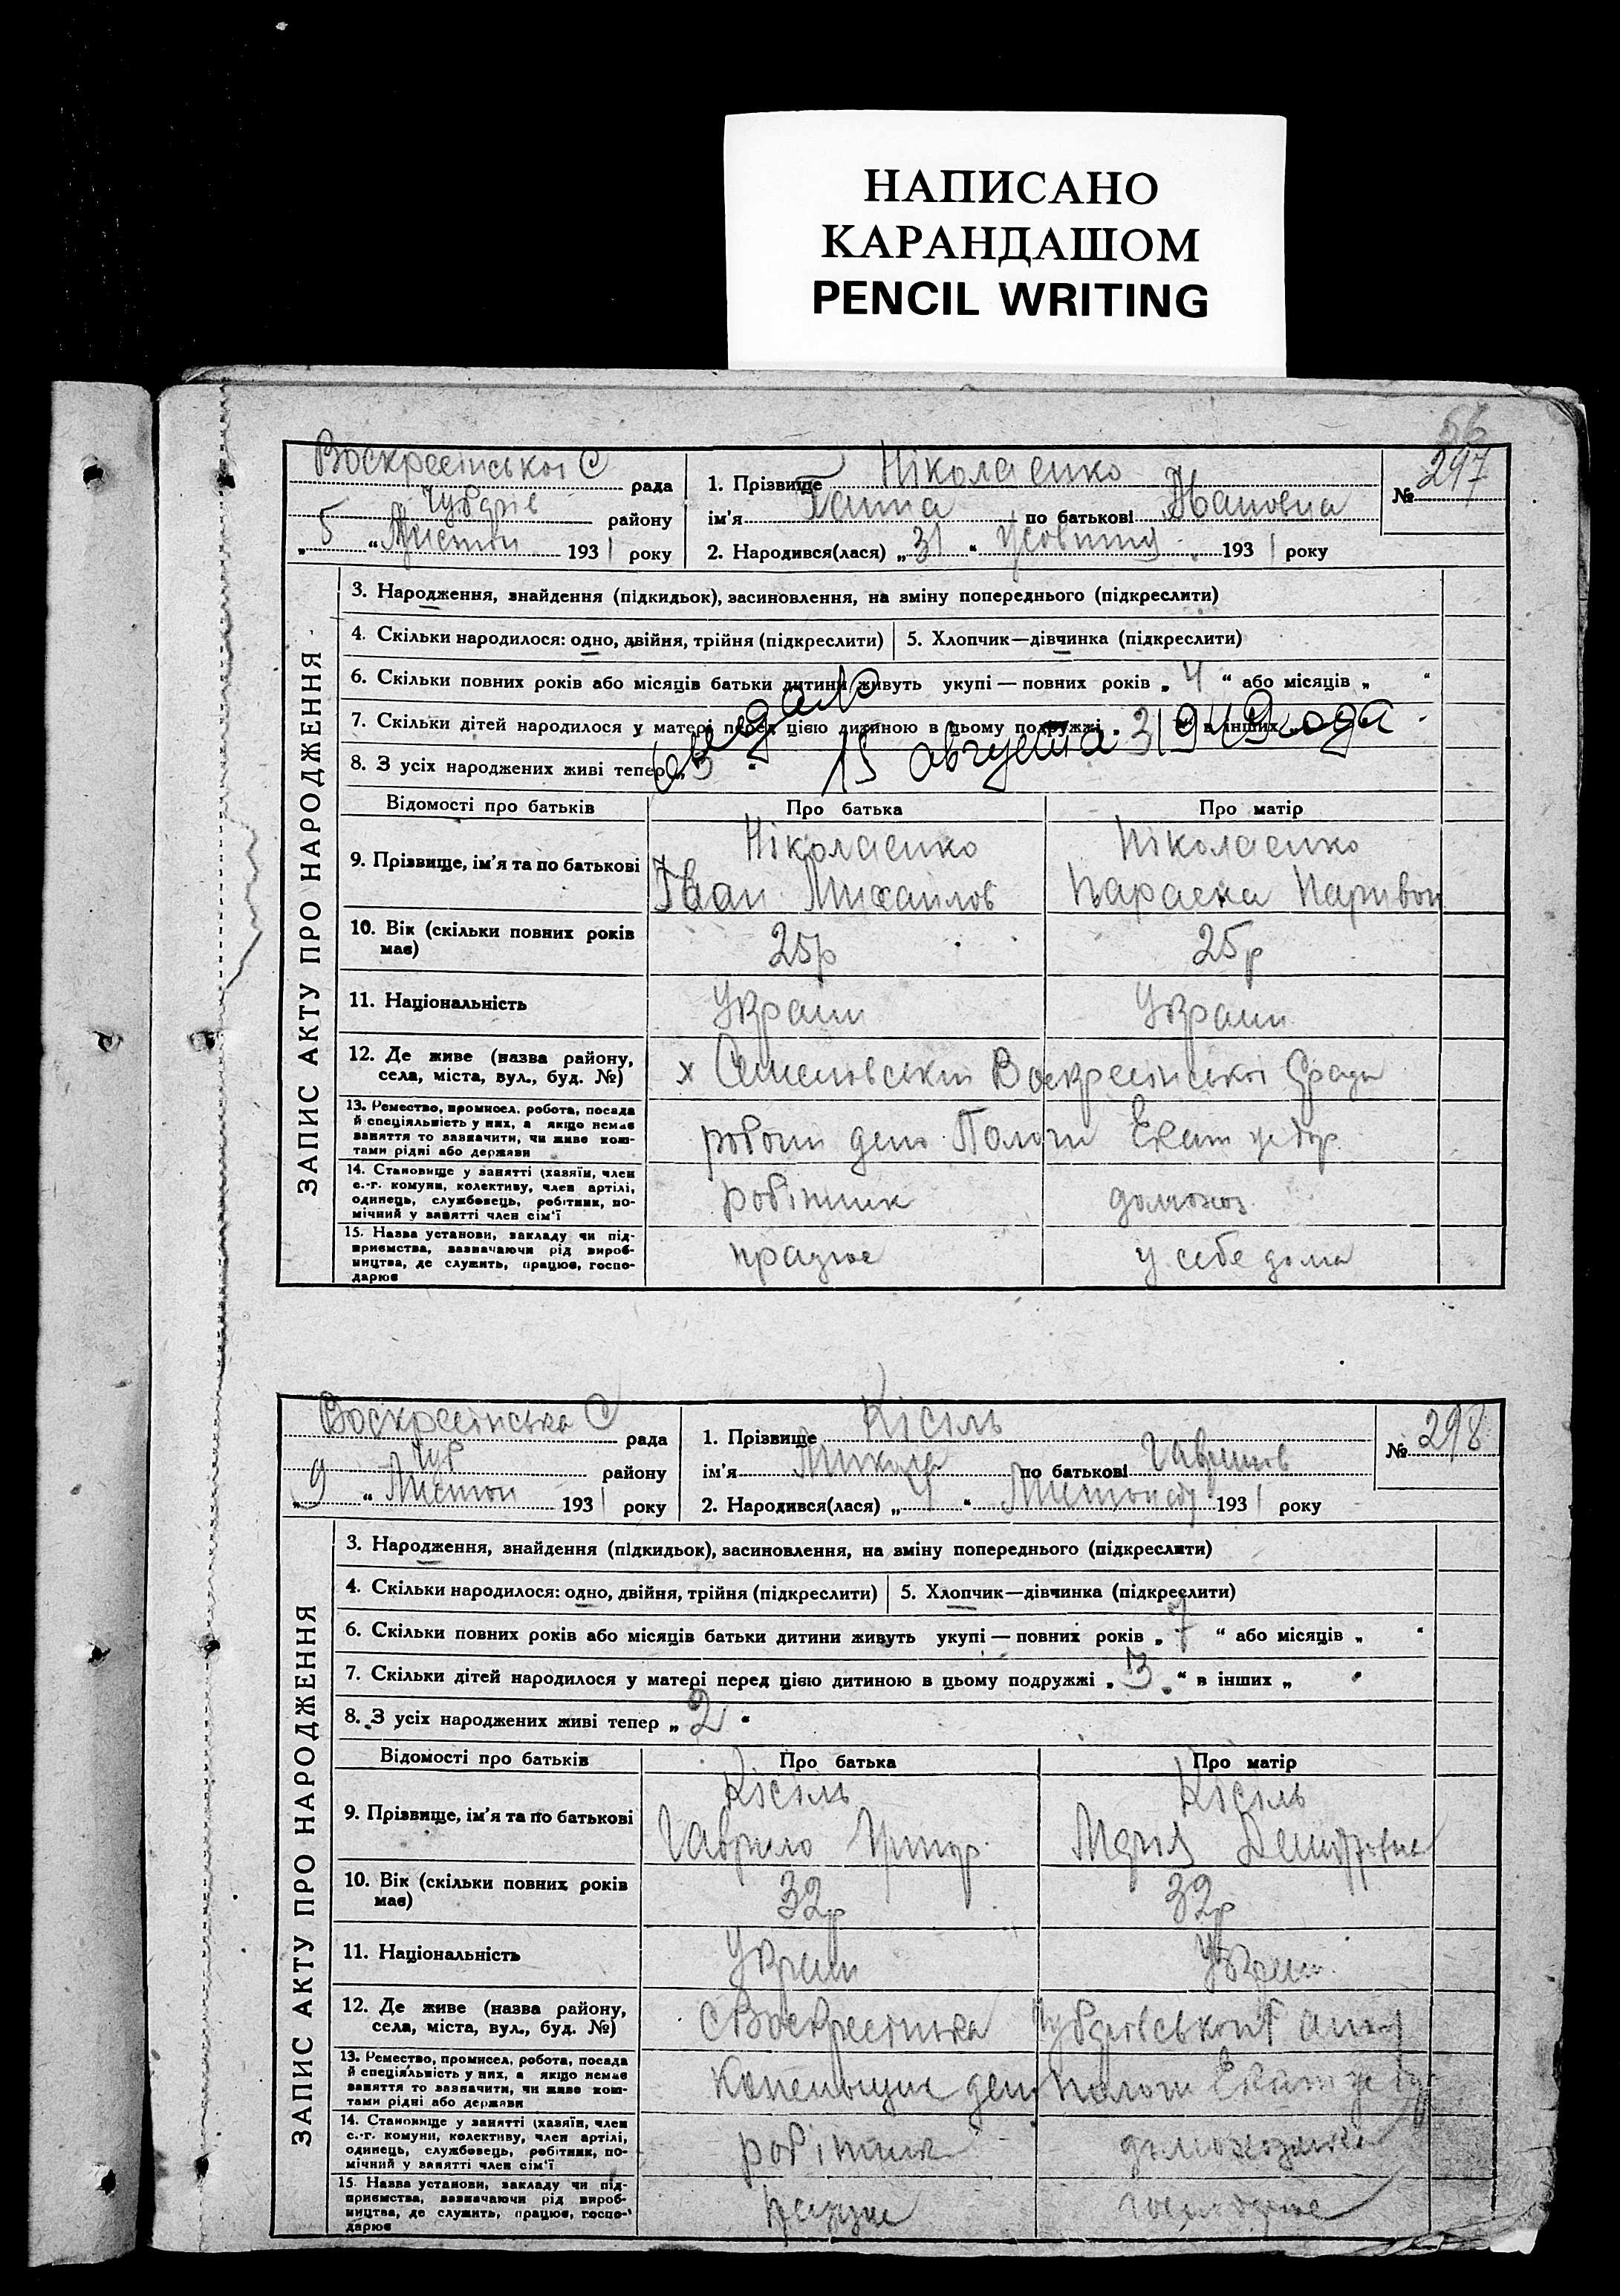 НАПИСАНО
КАРАНДАШОМ
PENCIL WRITING
66
Воскресінської С рада
Чубарів району
„ 5 “ Листоп 1931 року
1. Прізвище Ніколаенко
ім'я Ганна по батькові Івановна
2. Народився(лася) „ 31 “ 1931 року
№ 297
ЗАПИС АКТУ ПРО НАРОДЖЕННЯ
3. Народження, знайдення (підкидьок), засиновлення, на зміну попереднього (підкреслити)
4. Скільки народилося: одно, двійня, трійня (підкреслити) 5. Хлопчик—дівчинка (підкреслити)
6. Скільки повних років або місяців батьки дитини живуть укупі — повних років „ 4 “ або місяців „ “
7. Скільки дітей народилося у матері перед цією дитиною в цьому подружжі „ 3 “ в інших
8. З усіх народжених живі тепер „ 3 “
15 августа 1949 года
Відомості про батьків Про батька Про матір
9. Прізвище, ім'я та по батькові
Ніколаенко Ніколаенко
Іван Михаилов Параска
10. Вік (скільки повних років має) 25р 25р
11. Національність Украин Украин
12. Де живе (назва району, села, міста, вул., буд. №)
х Семеновський Воскресінської Сради
13. Ремество, промисел, робота, посада й спеціяльність у них, а якщо немає заняття то зазначити, чи живе коштами рідні або держави
робочи депо Пологи Екат
14. Становище у занятті (хазяїн, член с.-г. комуни, колективу, член артілі, одинець, службовець, робітник, помічний у занятті член сім'ї
робітник домохоз
15. Назва установи, закладу чи підприємства, зазначаючи рід виробництва, де служить, працює, господарює
працює у себе дома
Воскресінська С рада
Чуб району
„ 9 “ Листоп 1931 року
1. Прізвище Кісіль
ім'я Микола по батькові Гаврилов
2. Народився(лася) „ “ Листопаду 1931 року
№ 298
ЗАПИС АКТУ ПРО НАРОДЖЕННЯ
3. Народження, знайдення (підкидьок), засиновлення, на зміну попереднього (підкреслити)
4. Скільки народилося: одно, двійня, трійня (підкреслити) 5. Хлопчик—дівчинка (підкреслити)
6. Скільки повних років або місяців батьки дитини живуть укупі — повних років „ 7 “ або місяців „ “
7. Скільки дітей народилося у матері перед цією дитиною в цьому подружжі „ 3 “ в інших „ “
8. З усіх народжених живі тепер „ 2 “
Відомості про батьків Про батька Про матір
9. Прізвище, ім'я та по батькові
Кісіль Кісіль
Гаврило Григор Марія
10. Вік (скільки повних років має) 32р 32р
11. Національність Украин Украин
12. Де живе (назва району, села, міста, вул., буд. №)
с Воскресінка Чубарівського
13. Ремество, промисел, робота, посада й спеціяльність у них, а якщо немає заняття то зазначити, чи живе коштами рідні або держави
депо Пологи Екат
14. Становище у занятті (хазяїн, член с.-г. комуни, колективу, член артілі, одинець, службовець, робітник, помічний у занятті член сім'ї
робітник домохозяйка
15. Назва установи, закладу чи підприємства, зазначаючи рід виробництва, де служить, працює, господарює